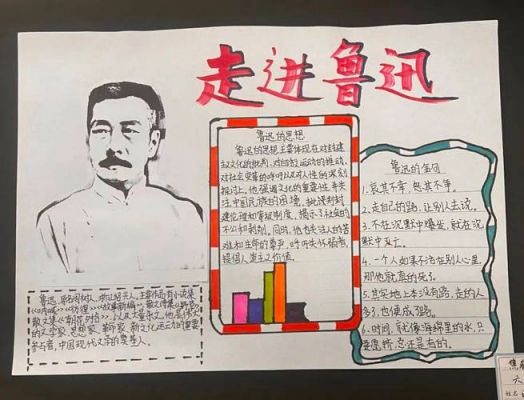 走进鲁迅
鲁迅的思想
鲁迅的思想主要体现在对封建
文化的批判、对
社会变革的呼吁以及对人性的深刻
探讨上。他强调文化的重要性,并关
注中国民族的困境,挑战封
建伦理和等级制度,揭示了社会的
不公和剥削。同时,他也关注人的苦
难和生命的尊严,呼
提倡人道主义价值。
鲁迅的金句
1.哀其不幸,怒其不争。
2.走自己的路,让别人去说。
3.不在沉默中爆发,就在沉
默中灭亡。
4.一个人如果不活在别人心里,
那他就真的死了。
5.其实地上本没有路,走的人
多了,也便成了路。
6.时间,就像海绵里的水,只
要愿挤,总还是有的。
鲁迅,原名周树人,浙江绍兴人,主要作品有小说集
《呐喊》《彷徨》《故事新编》,散文诗集《野草》
散文集《朝花夕拾》
的文学家、思想家、革命家,新文化运动的重要
参与者,中国现代文学的奠基人。
六
姓名